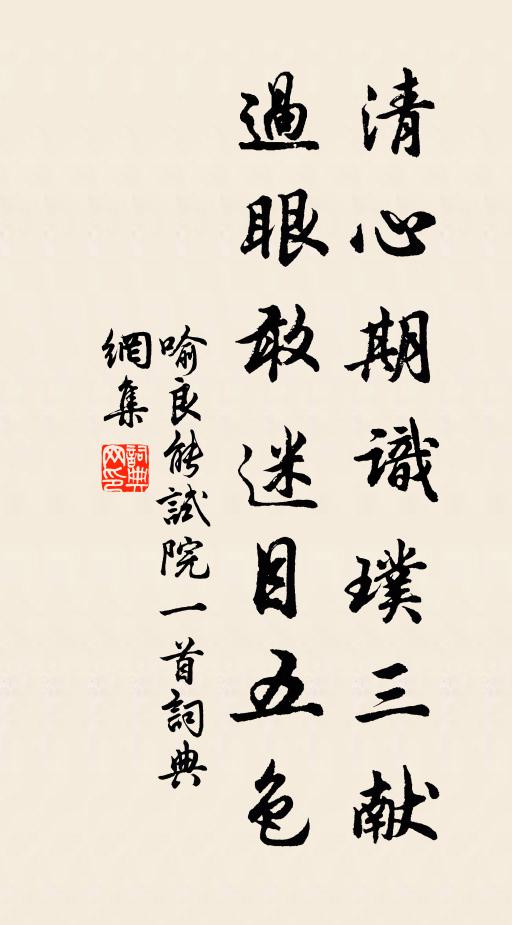 清心期識璞三献
過眼敢迷目五色
喻良能試院一首詞典
網集
詞典
网印